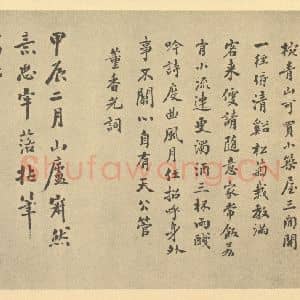 青山可買小築屋三間開
一徑俯清谿松菊栽教滿
客來便請隨意家常飯若
肯小流連更濁酒三杯兩醆
吟詩度曲風月任招呼身外
事不關心自有天公管
董香光詞
甲辰二月山廬窅然
意思牢落拈筆
Shufawang.CN